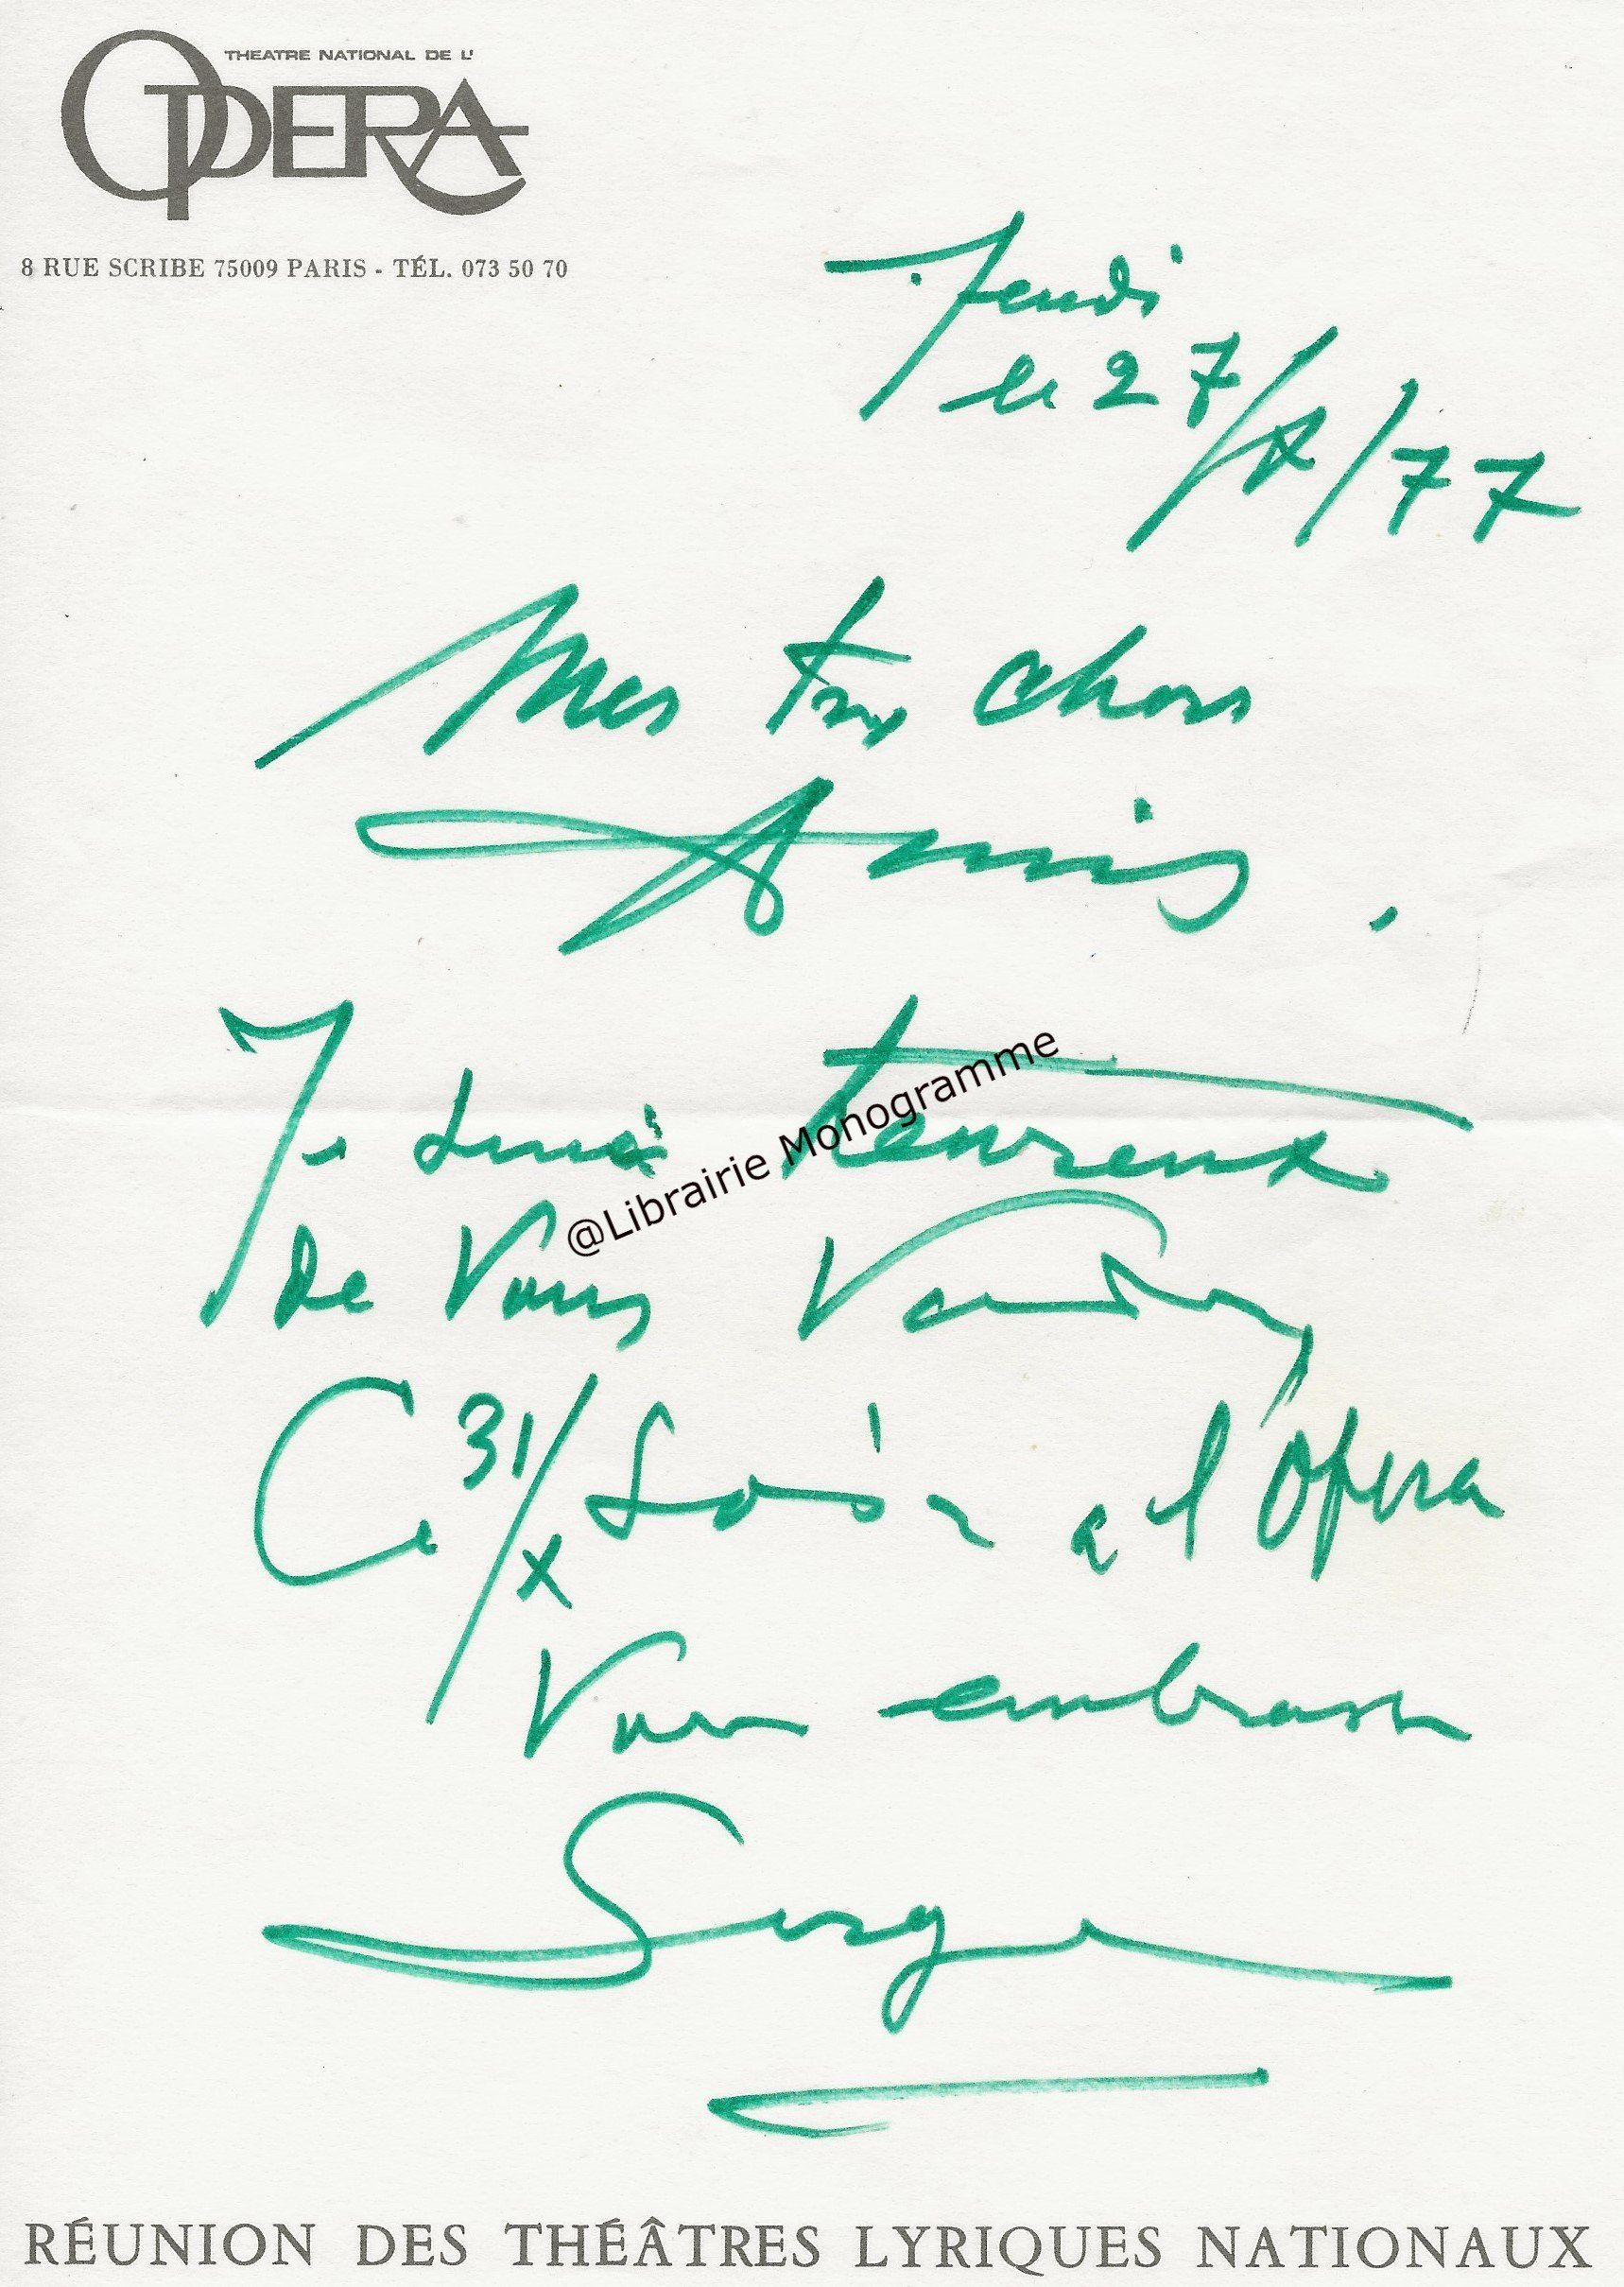 THEATRE NATIONAL DE L'
OPERA
8 RUE SCRIBE 75009 PARIS - TÉL. 073 50 70
Jeudi
le 27/X/77
Mes très chers
Amis,
Je serai heureux
de Vous
Ce 31/X Soir a l'Opera
Vous embrasse
Serge
@Librairie Monogramme
RÉUNION DES THÉÂTRES LYRIQUES NATIONAUX